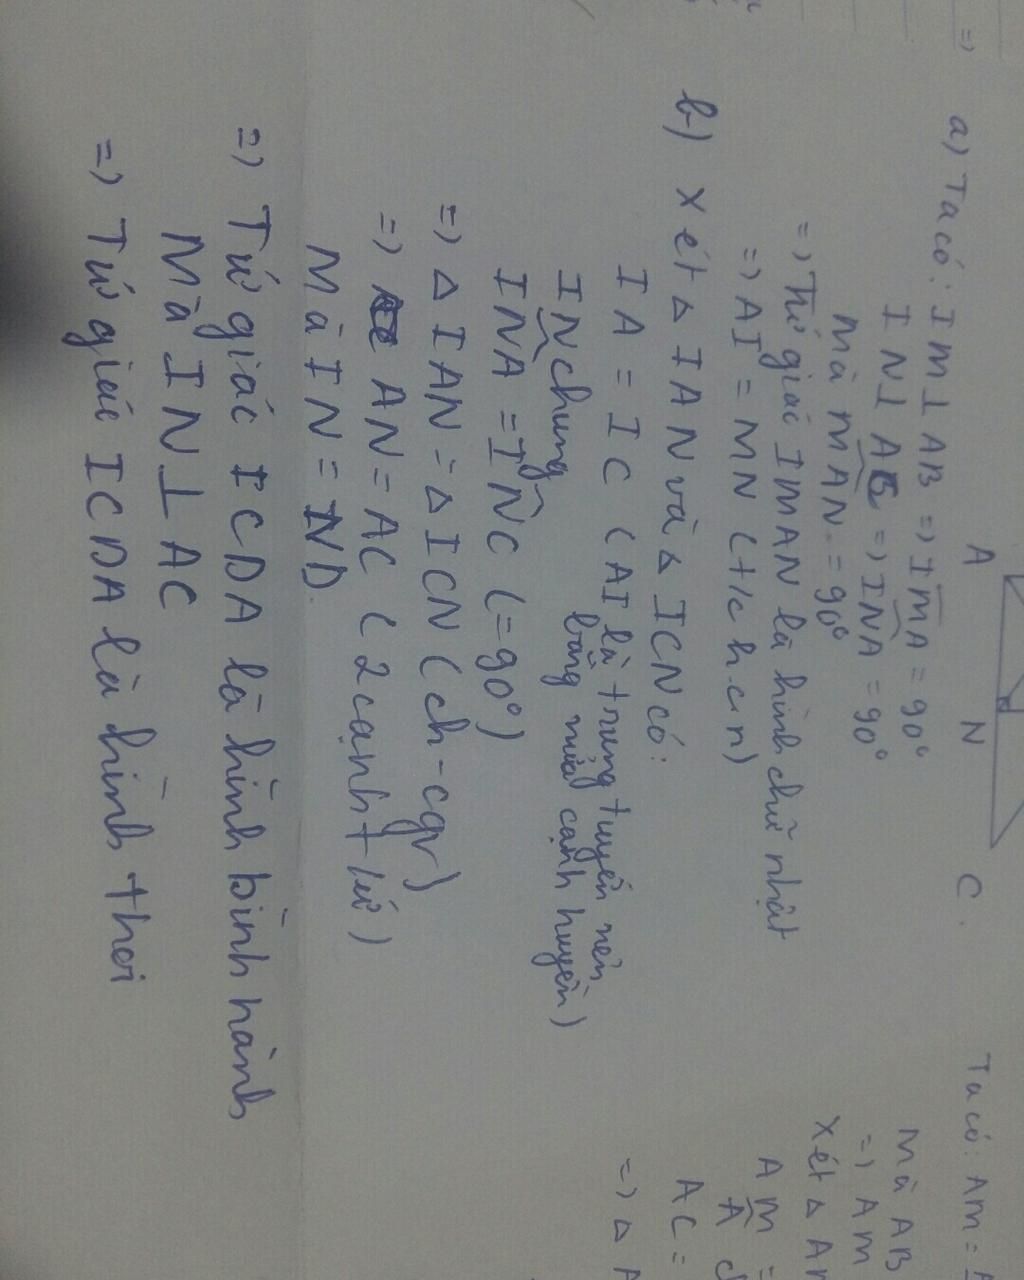 =)
A
N
C
a) Ta có: IM ⊥ AB => IMA = 90°
IN ⊥ AC => INA = 90°
Mà MAN = 90°
=> Tứ giác IMAN là hình chữ nhật
=> AI = MN (t/c h.c.n)
b) Xét Δ IAN và Δ ICN có:
IA = IC (AI là trung tuyến nên
bằng nửa cạnh huyền)
IN chung
INA = INC (= 90°)
=> Δ IAN = Δ ICN (ch-cgv)
=> AN = AC (2 cạnh t/ứ)
Mà IN = ND
=> Tứ giác ICDA là hình bình hành
Mà IN ⊥ AC
=> Tứ giác ICDA là hình thoi
Ta có: AM =
Mà AB
=> AM
Xét Δ AN
AM =
A c
AC =
=> Δ A